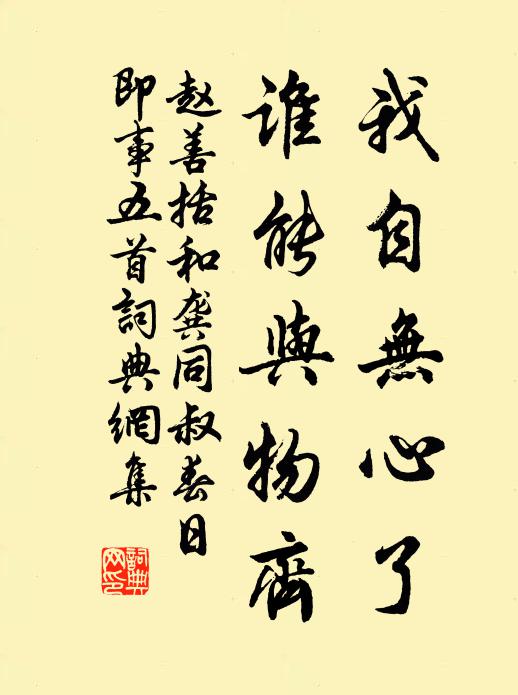 我自無心了
誰能與物齊
赵善括和龔同叔春日
即事五首詞典網集
詞典
网印